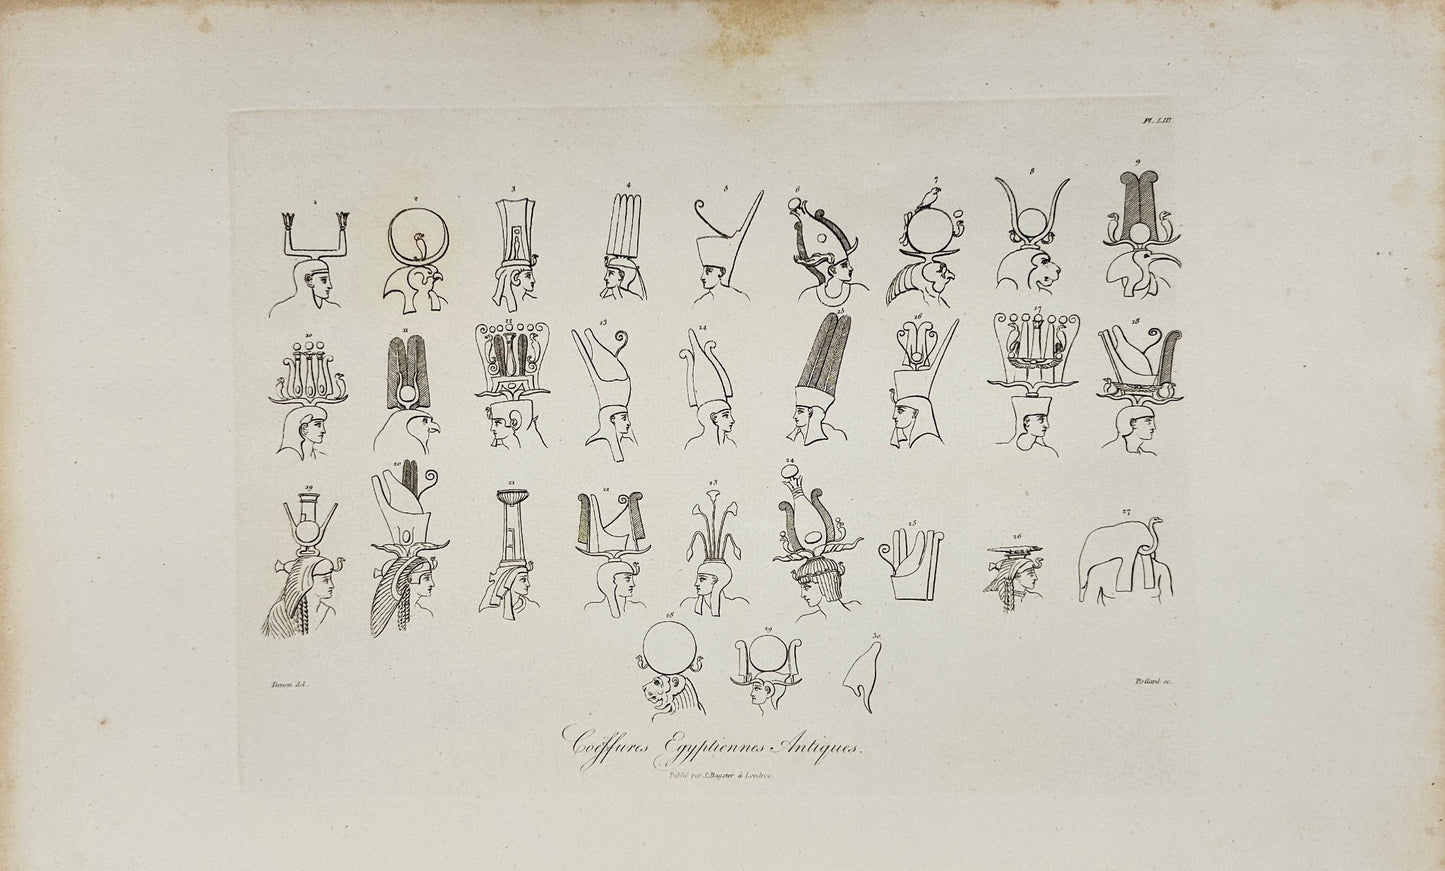 Pl. LIII.
1 2 3 4 5 6 7 8 9
10 11 12 13 14 15 16 17 18
19 20 21 22 23 24 25 26 27
28 29 30
Denon del. Pollard sc.
Coëffures Egyptiennes Antiques.
Publié par S. Bagster à Londres.